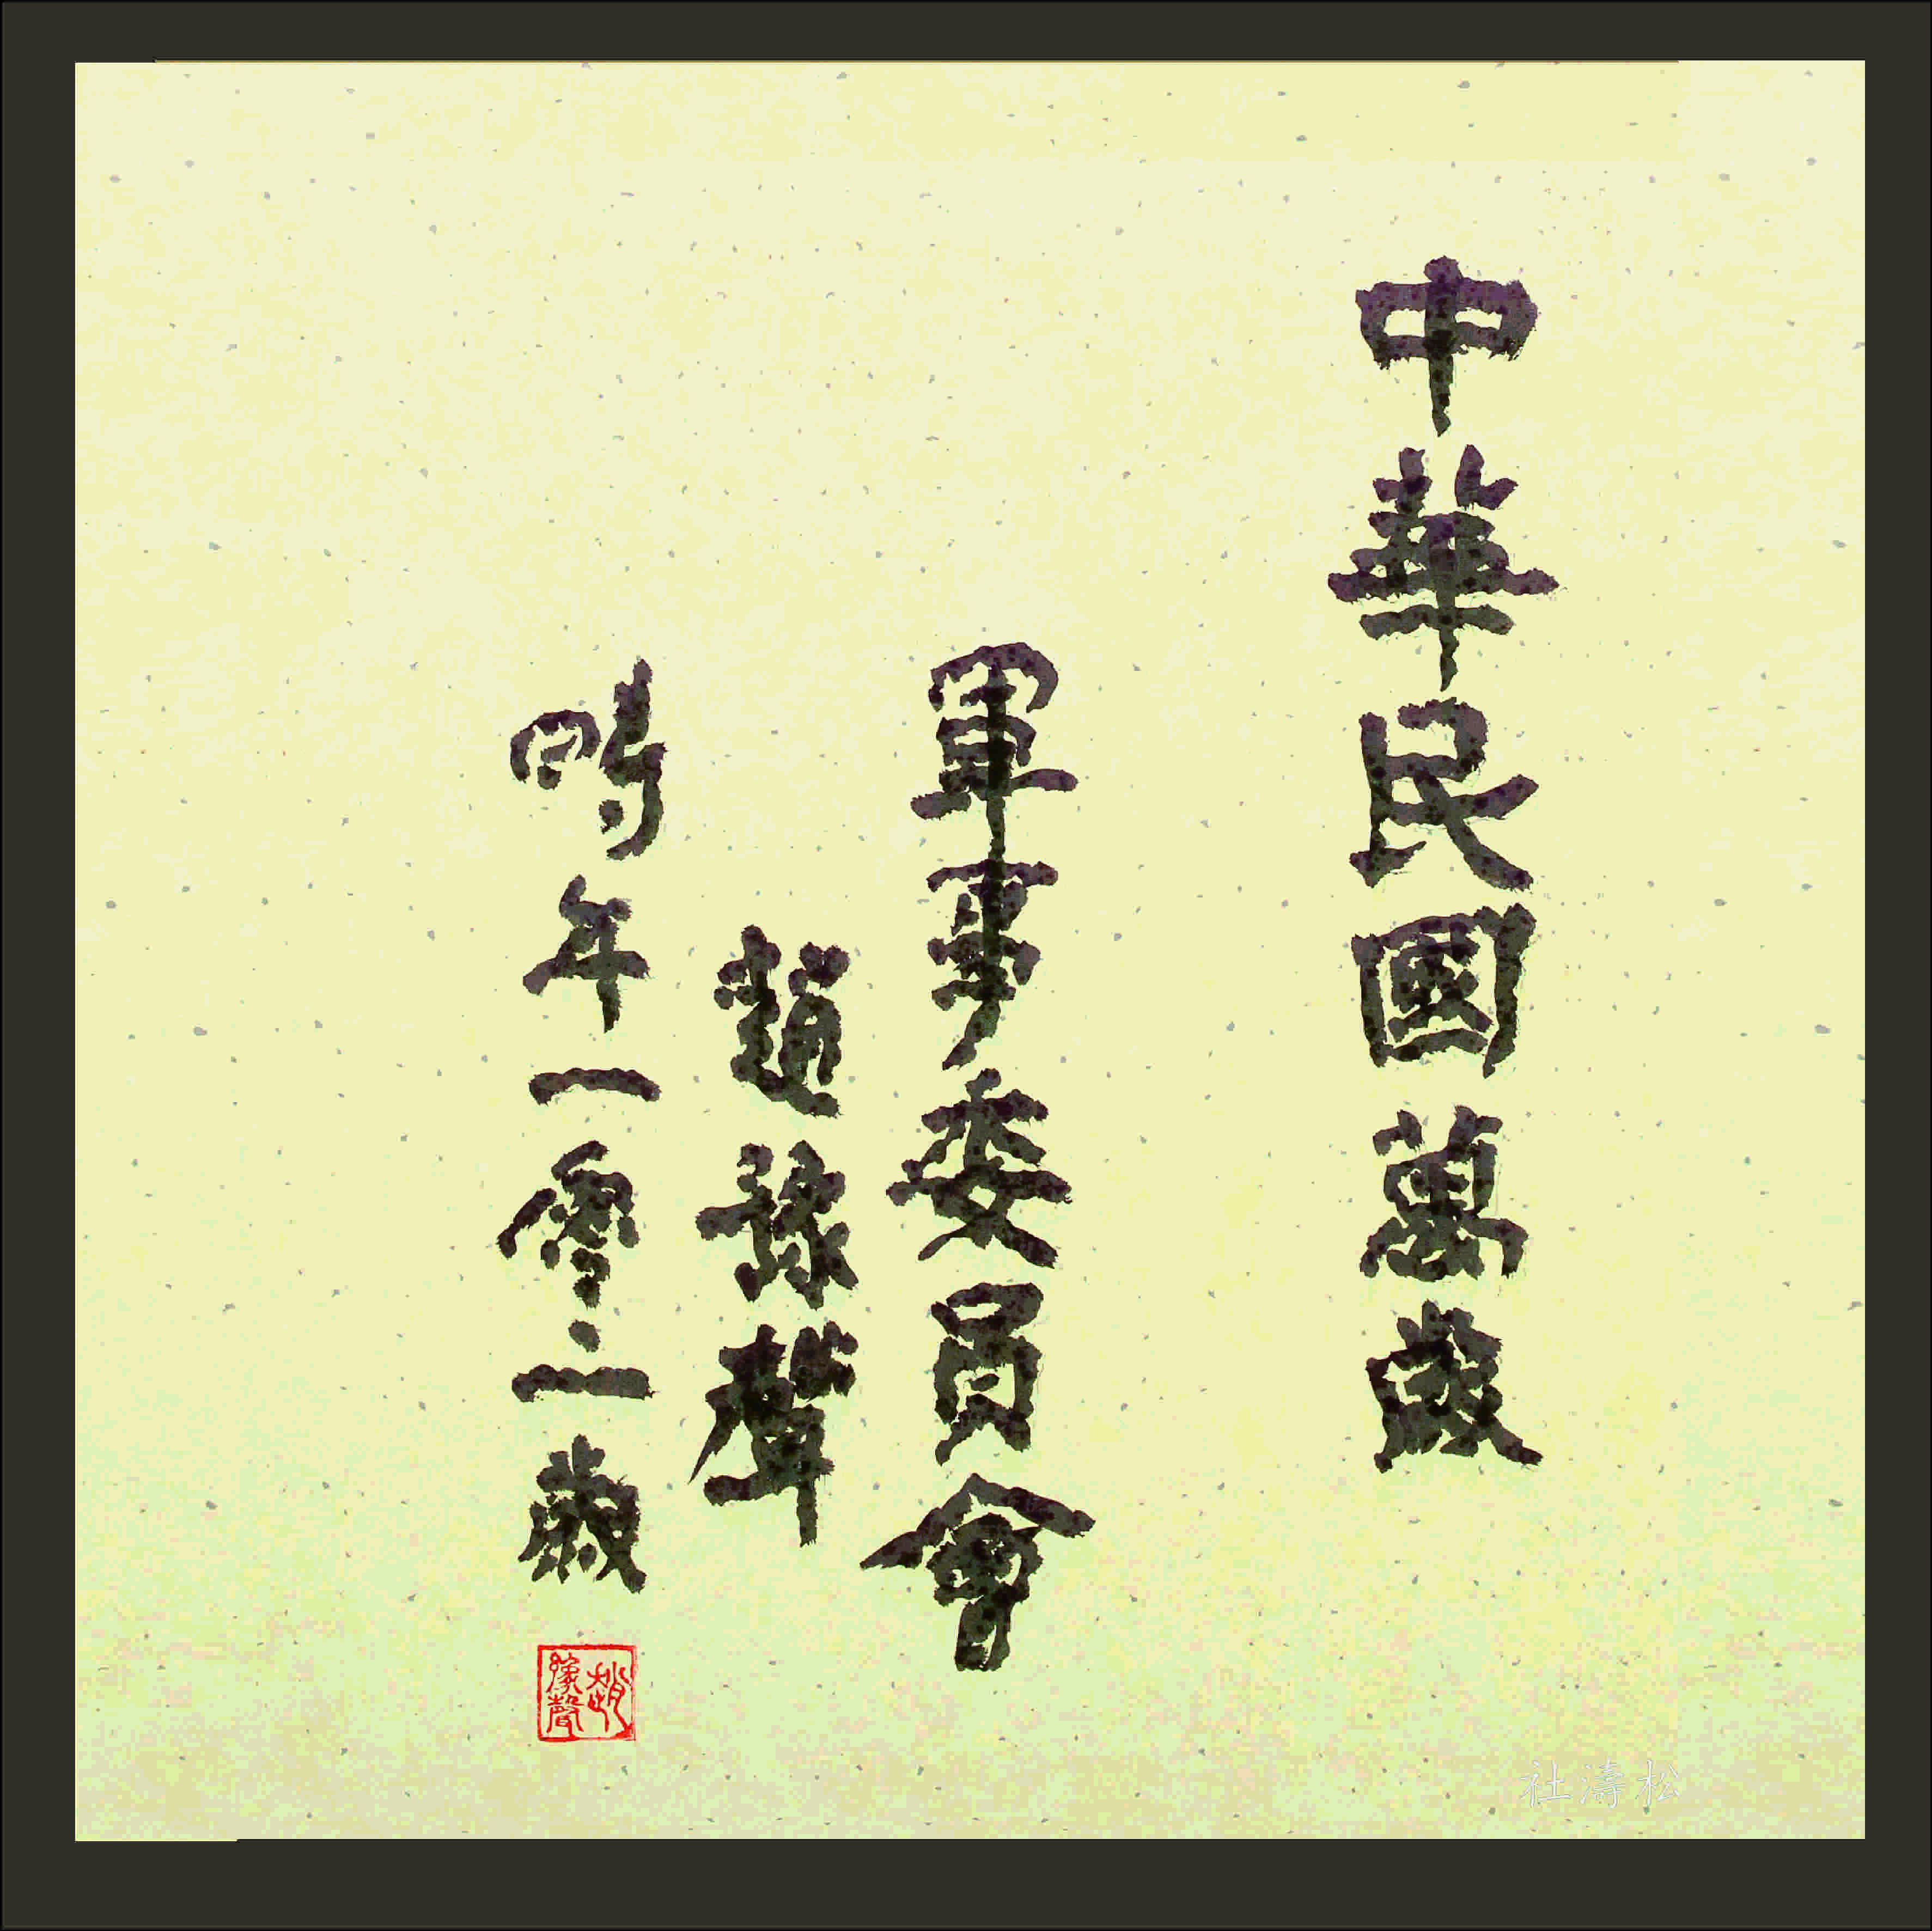 中華民國萬歲
軍事委員會
趙豫聲
時年一零二歲
趙豫聲
松濤社